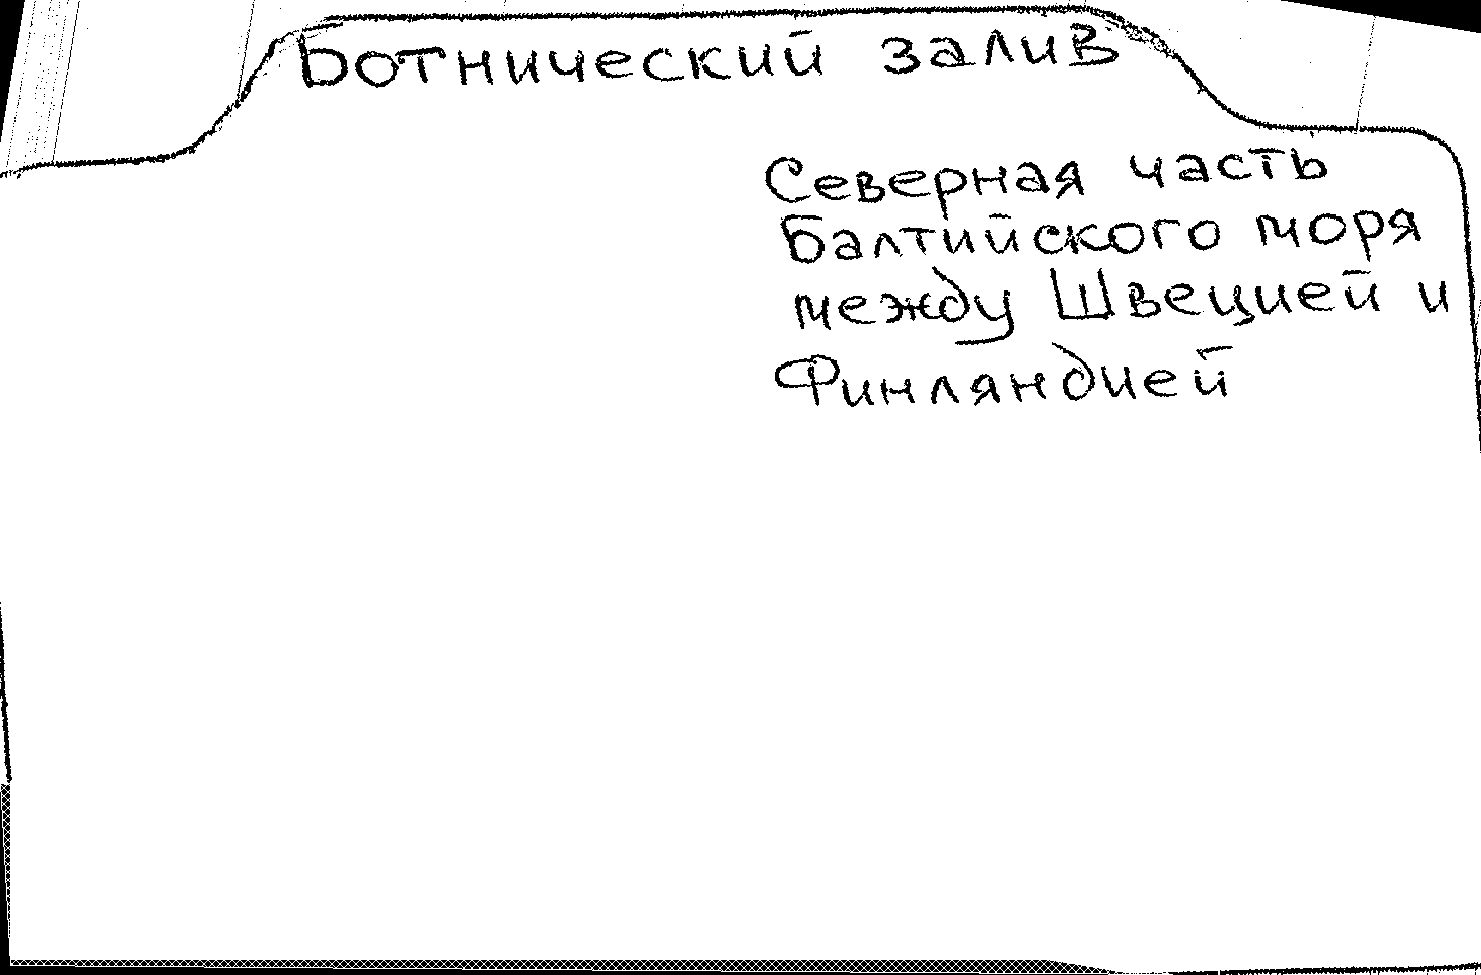 Ботнический залив
Северная часть
Балтийского моря
между Швецией и
Финляндией